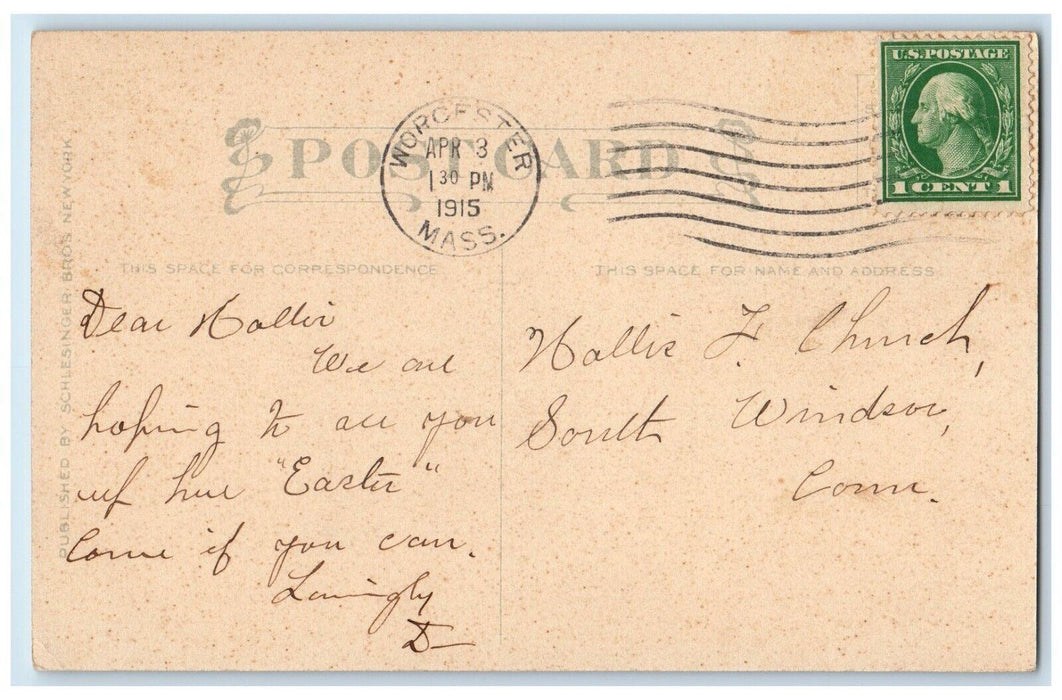 U.S. POSTAGE
1 CENT 1
WORCESTER
APR 3
1 30 PM
1915
MASS.
POST CARD
THIS SPACE FOR CORRESPONDENCE
THIS SPACE FOR NAME AND ADDRESS
PUBLISHED BY SCHLESINGER BROS. NEW YORK
Dear Hollis
We are
hoping to see you
up here "Easter"
Come if you can.
Lovingly
D
Hollis F. Church,
South Windsor,
Conn.